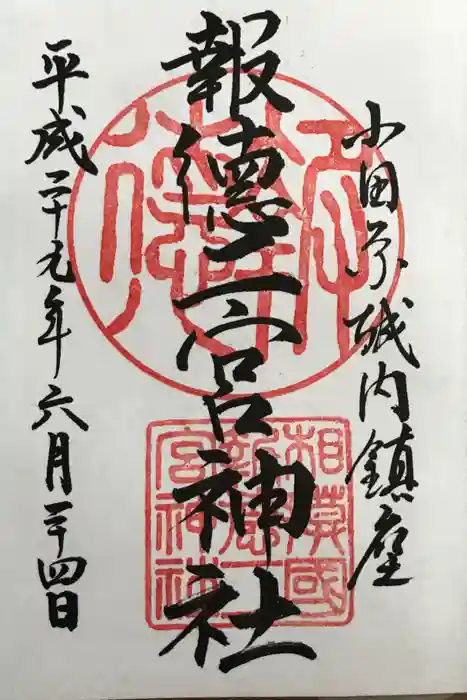 小田原城内鎮座
報德二宮神社
相模國
報德二
宮神社
平成二十九年六月二十四日